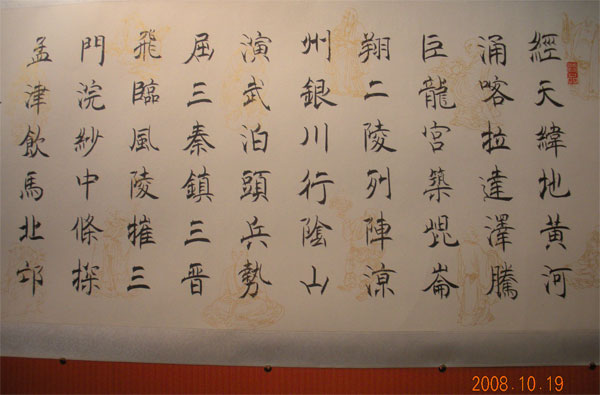 經天緯地黃河
涌喀拉達澤騰
巨龍宮築崐崙
翔二陵列陣涼
州銀川行陰山
演武泊頭兵勢
屈三秦鎮三晉
飛臨風陵摧三
門浣紗中條探
孟津飲馬北邙
2008.10.19